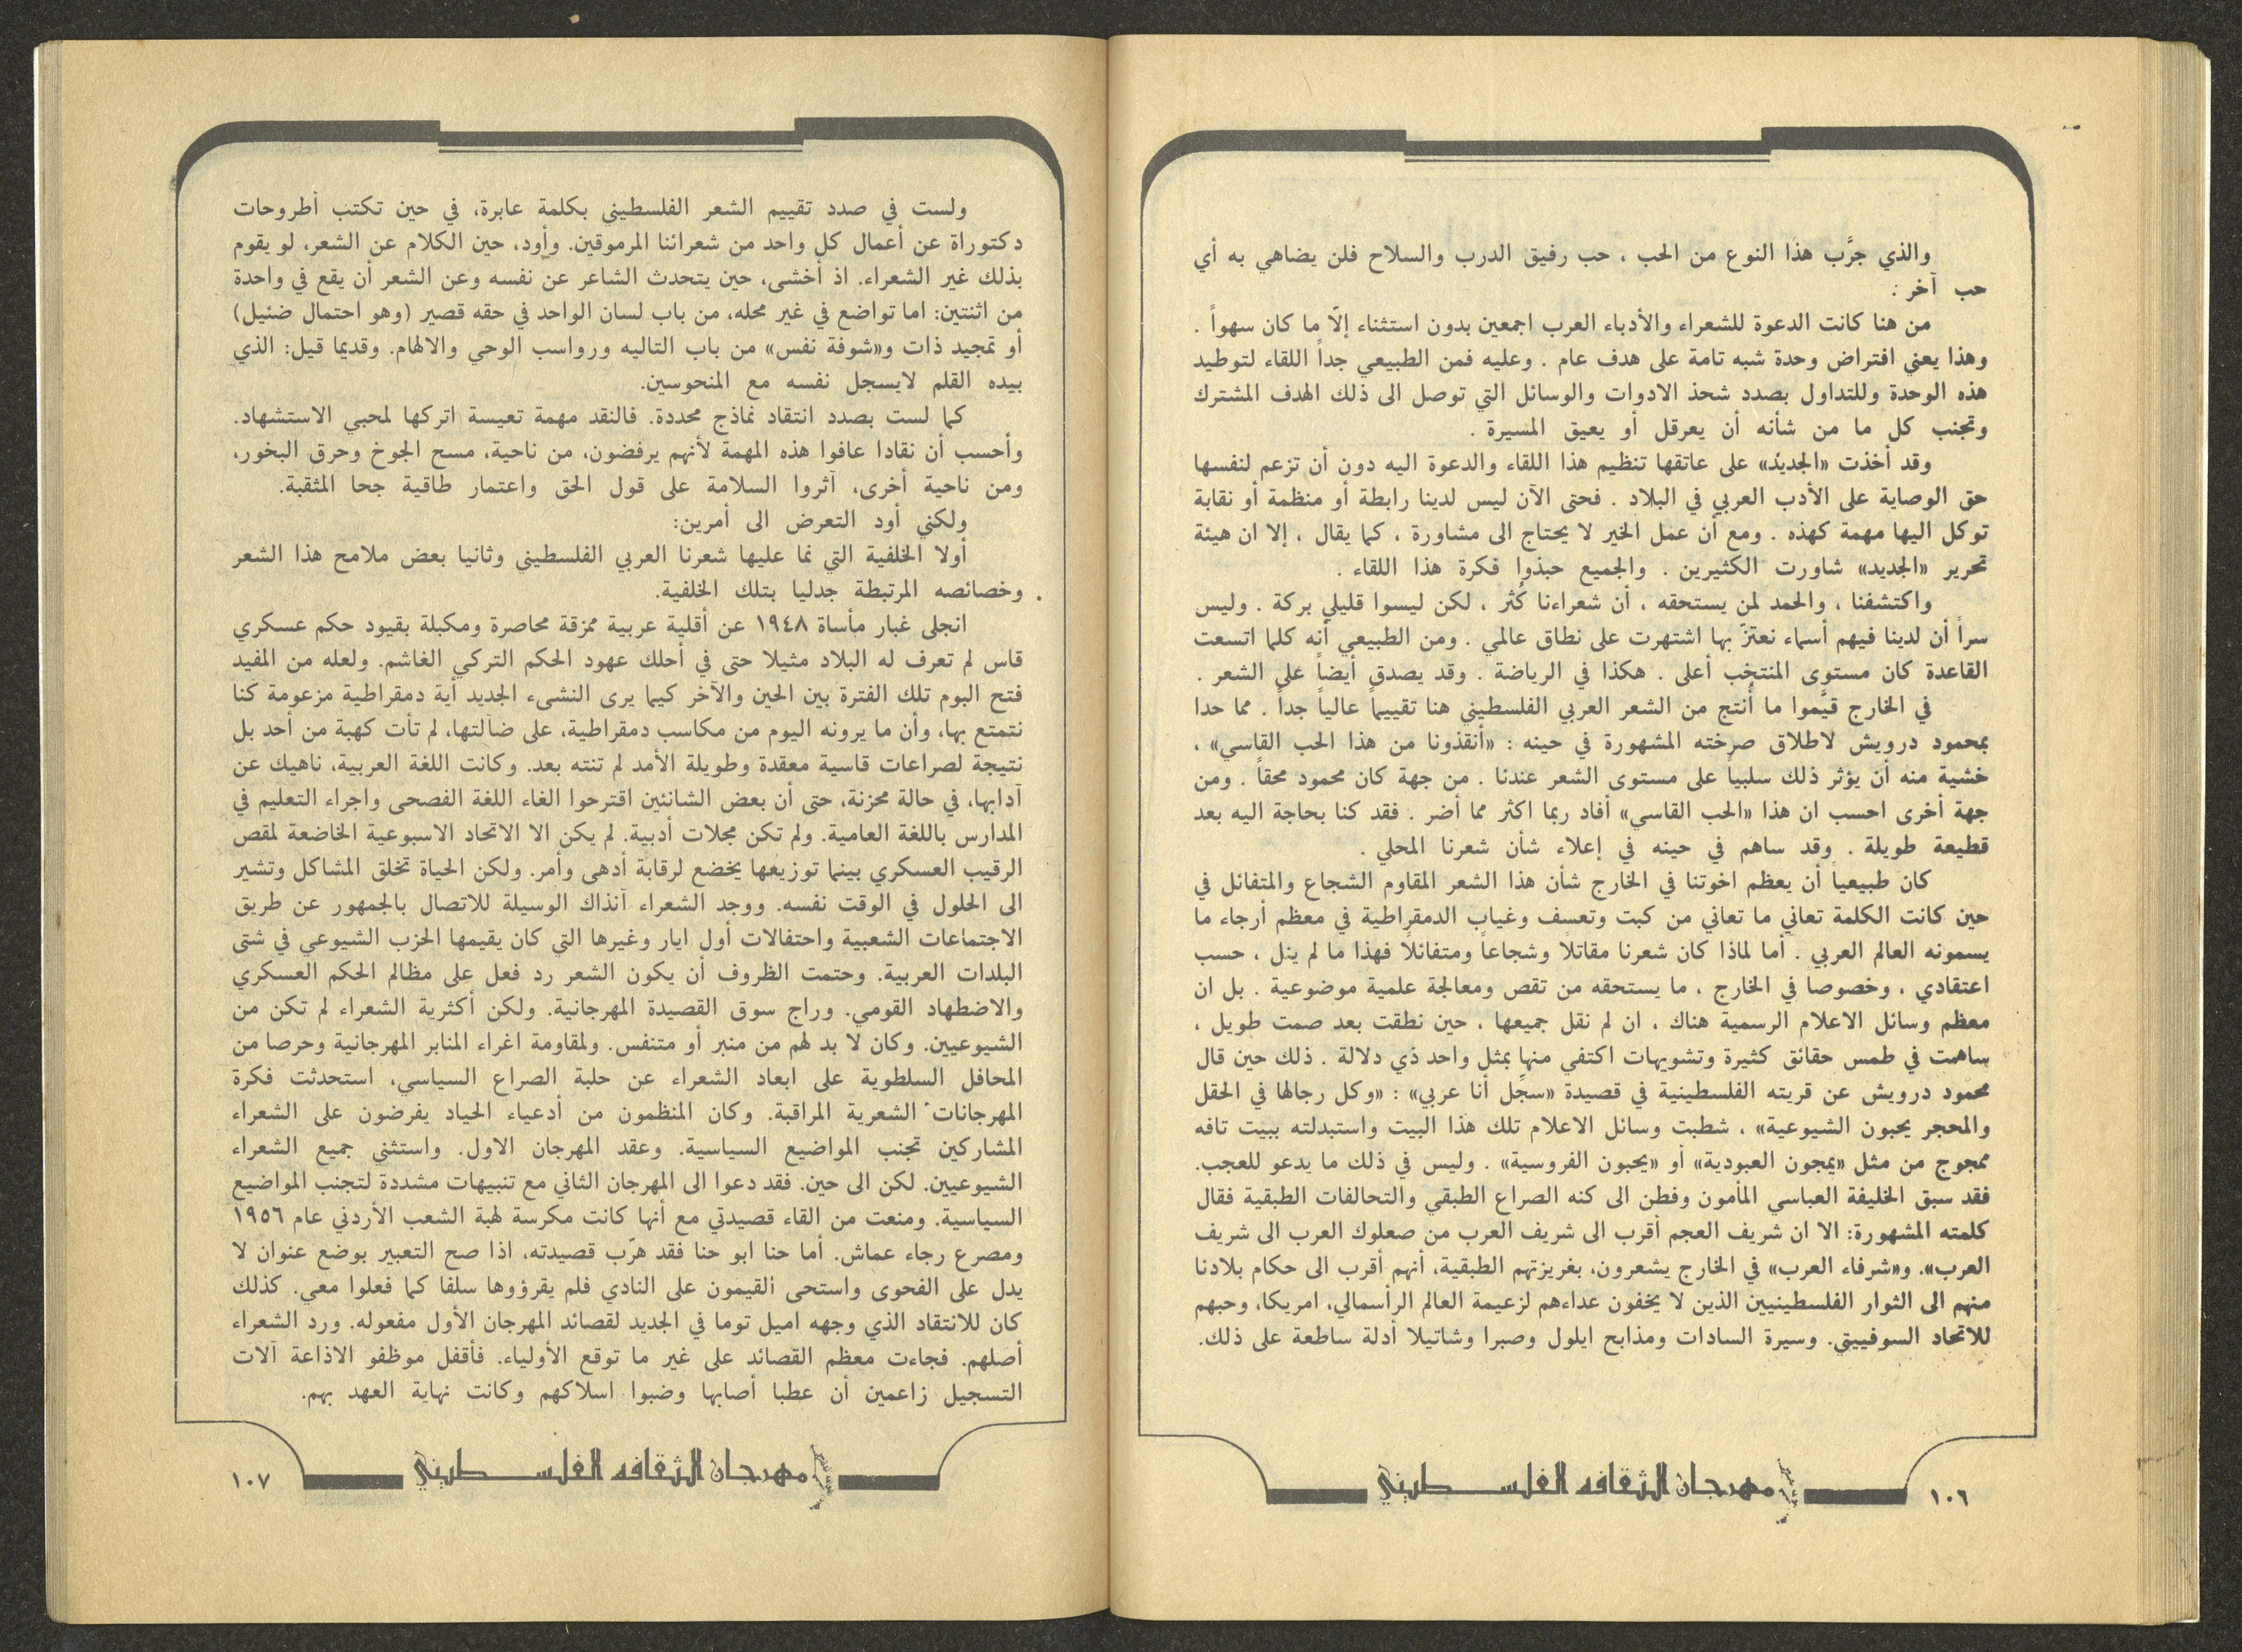 والذي جرَّب هذا النوع من الحب ، حب رفيق الدرب والسلاح فلن يضاهي به أي
حب آخر .
من هنا كانت الدعوة للشعراء والأدباء العرب اجمعين بدون استثناء إلاّ ما كان سهواً .
وهذا يعني افتراض وحدة شبه تامة على هدف عام . وعليه فمن الطبيعي جداً اللقاء لتوطيد
هذه الوحدة وللتداول بصدد شحذ الادوات والوسائل التي توصل الى ذلك الهدف المشترك
وتجنب كل ما من شأنه أن يعرقل أو يعيق المسيرة .
وقد أخذت «الجديد» على عاتقها تنظيم هذا اللقاء والدعوة اليه دون أن تزعم لنفسها
حق الوصاية على الأدب العربي في البلاد . فحتى الآن ليس لدينا رابطة أو منظمة أو نقابة
توكل اليها مهمة كهذه . ومع أن عمل الخير لا يحتاج الى مشاورة ، كما يقال ، إلا ان هيئة
تحرير «الجديد» شاورت الكثيرين . والجميع حبذوا فكرة هذا اللقاء .
واكتشفنا ، والحمد لمن يستحقه ، أن شعراءنا كُثر ، لكن ليسوا قليلي بركة . وليس
سراً أن لدينا فيهم أسماء نعتزّ بها اشتهرت على نطاق عالمي . ومن الطبيعي أنه كلما اتسعت
القاعدة كان مستوى المنتخب أعلى . هكذا في الرياضة . وقد يصدق أيضاً على الشعر .
في الخارج قيَّموا ما أُنتج من الشعر العربي الفلسطيني هنا تقييماً عالياً جداً . مما حدا
بمحمود درويش لاطلاق صرخته المشهورة في حينه : «أنقذونا من هذا الحب القاسي» ،
خشية منه أن يؤثر ذلك سلبياً على مستوى الشعر عندنا . من جهة كان محمود محقاً . ومن
جهة أخرى احسب ان هذا «الحب القاسي» أفاد ربما اكثر مما أضر . فقد كنا بحاجة اليه بعد
قطيعة طويلة . وقد ساهم في حينه في إعلاء شأن شعرنا المحلي .
كان طبيعياً أن يعظم اخوتنا في الخارج شأن هذا الشعر المقاوم الشجاع والمتفائل في
حين كانت الكلمة تعاني ما تعاني من كبت وتعسف وغياب الدمقراطية في معظم أرجاء ما
يسمونه العالم العربي . أما لماذا كان شعرنا مقاتلا وشجاعاً ومتفائلاً فهذا ما لم ينل ، حسب
اعتقادي ، وخصوصاً في الخارج ، ما يستحقه من تقص ومعالجة علمية موضوعية . بل ان
معظم وسائل الاعلام الرسمية هناك ، ان لم نقل جميعها ، حين نطقت بعد صمت طويل ،
ساهمت في طمس حقائق كثيرة وتشويهات اكتفي منها بمثل واحد ذي دلالة . ذلك حين قال
محمود درويش عن قريته الفلسطينية في قصيدة «سجِّل أنا عربي» : «وكل رجالها في الحقل
والمحجر يحبون الشيوعية» ، شطبت وسائل الاعلام تلك هذا البيت واستبدلته ببيت تافه
ممجوج من مثل «يمجون العبودية» أو «يحبون الفروسية» . وليس في ذلك ما يدعو للعجب.
فقد سبق الخليفة العباسي المأمون وفطن الى كنه الصراع الطبقي والتحالفات الطبقية فقال
كلمته المشهورة: الا ان شريف العجم أقرب الى شريف العرب من صعلوك العرب الى شريف
العرب». و«شرفاء العرب» في الخارج يشعرون، بغريزتهم الطبقية، أنهم أقرب الى حكام بلادنا
منهم الى الثوار الفلسطينيين الذين لا يخفون عداءهم لزعيمة العالم الرأسمالي، امريكا، وحبهم
للاتحاد السوفييتي. وسيرة السادات ومذابح ايلول وصبرا وشاتيلا أدلة ساطعة على ذلك.
مهرجان الثقافه الفلسطيني
١٠٦
ولست في صدد تقييم الشعر الفلسطيني بكلمة عابرة، في حين تكتب أطروحات
دكتوراة عن أعمال كل واحد من شعرائنا المرموقين. وأود، حين الكلام عن الشعر، لو يقوم
بذلك غير الشعراء. اذ أخشى، حين يتحدث الشاعر عن نفسه وعن الشعر أن يقع في واحدة
من اثنتين: اما تواضع في غير محله، من باب لسان الواحد في حقه قصير (وهو احتمال ضئيل)
أو تمجيد ذات و«شوفة نفس» من باب التاليه ورواسب الوحي والالهام. وقديما قيل: الذي
بيده القلم لايسجل نفسه مع المنحوسين.
كما لست بصدد انتقاد نماذج محددة. فالنقد مهمة تعيسة اتركها لمحبي الاستشهاد.
وأحسب أن نقادا عافوا هذه المهمة لأنهم يرفضون، من ناحية، مسح الجوخ وحرق البخور،
ومن ناحية أخرى، آثروا السلامة على قول الحق واعتمار طاقية جحا المثقبة.
ولكني أود التعرض الى أمرين:
أولا الخلفية التي نما عليها شعرنا العربي الفلسطيني وثانيا بعض ملامح هذا الشعر
وخصائصه المرتبطة جدليا بتلك الخلفية.
انجلى غبار مأساة ١٩٤٨ عن أقلية عربية ممزقة محاصرة ومكبلة بقيود حكم عسكري
قاس لم تعرف له البلاد مثيلا حتى في أحلك عهود الحكم التركي الغاشم. ولعله من المفيد
فتح البوم تلك الفترة بين الحين والآخر كيما يرى النشىء الجديد أية دمقراطية مزعومة كنا
نتمتع بها، وأن ما يرونه اليوم من مكاسب دمقراطية، على ضآلتها، لم تأت كهبة من أحد بل
نتيجة لصراعات قاسية معقدة وطويلة الأمد لم تنته بعد. وكانت اللغة العربية، ناهيك عن
آدابها، في حالة محزنة، حتى أن بعض الشانئين اقترحوا الغاء اللغة الفصحى واجراء التعليم في
المدارس باللغة العامية. ولم تكن مجلات أدبية. لم يكن الا الاتحاد الاسبوعية الخاضعة لمقص
الرقيب العسكري بينما توزيعها يخضع لرقابة أدهى وأمر. ولكن الحياة تخلق المشاكل وتشير
الى الحلول في الوقت نفسه. ووجد الشعراء آنذاك الوسيلة للاتصال بالجمهور عن طريق
الاجتماعات الشعبية واحتفالات أول ايار وغيرها التي كان يقيمها الحزب الشيوعي في شتى
البلدات العربية. وحتمت الظروف أن يكون الشعر رد فعل على مظالم الحكم العسكري
والاضطهاد القومي. وراج سوق القصيدة المهرجانية. ولكن أكثرية الشعراء لم تكن من
الشيوعيين. وكان لا بد لهم من منبر أو متنفس. ولمقاومة اغراء المنابر المهرجانية وحرصا من
المحافل السلطوية على ابعاد الشعراء عن حلبة الصراع السياسي، استحدثت فكرة
المهرجانات الشعرية المراقبة. وكان المنظمون من أدعياء الحياد يفرضون على الشعراء
المشاركين تجنب المواضيع السياسية. وعقد المهرجان الاول. واستثني جميع الشعراء
الشيوعيين. لكن الى حين. فقد دعوا الى المهرجان الثاني مع تنبيهات مشددة لتجنب المواضيع
السياسية. ومنعت من القاء قصيدتي مع أنها كانت مكرسة لهبة الشعب الأردني عام ١٩٥٦
ومصرع رجاء عماش. أما حنا ابو حنا فقد هرّب قصيدته، اذا صح التعبير بوضع عنوان لا
يدل على الفحوى واستحى القيمون على النادي فلم يقرؤوها سلفا كما فعلوا معي. كذلك
كان للانتقاد الذي وجهه اميل توما في الجديد لقصائد المهرجان الأول مفعوله. ورد الشعراء
أصلهم. فجاءت معظم القصائد على غير ما توقع الأولياء. فأقفل موظفو الاذاعة آلات
التسجيل زاعمين أن عطبا أصابها وضبوا اسلاكهم وكانت نهاية العهد بهم.
مهرجان الثقافه الفلسطيني
١٠٧